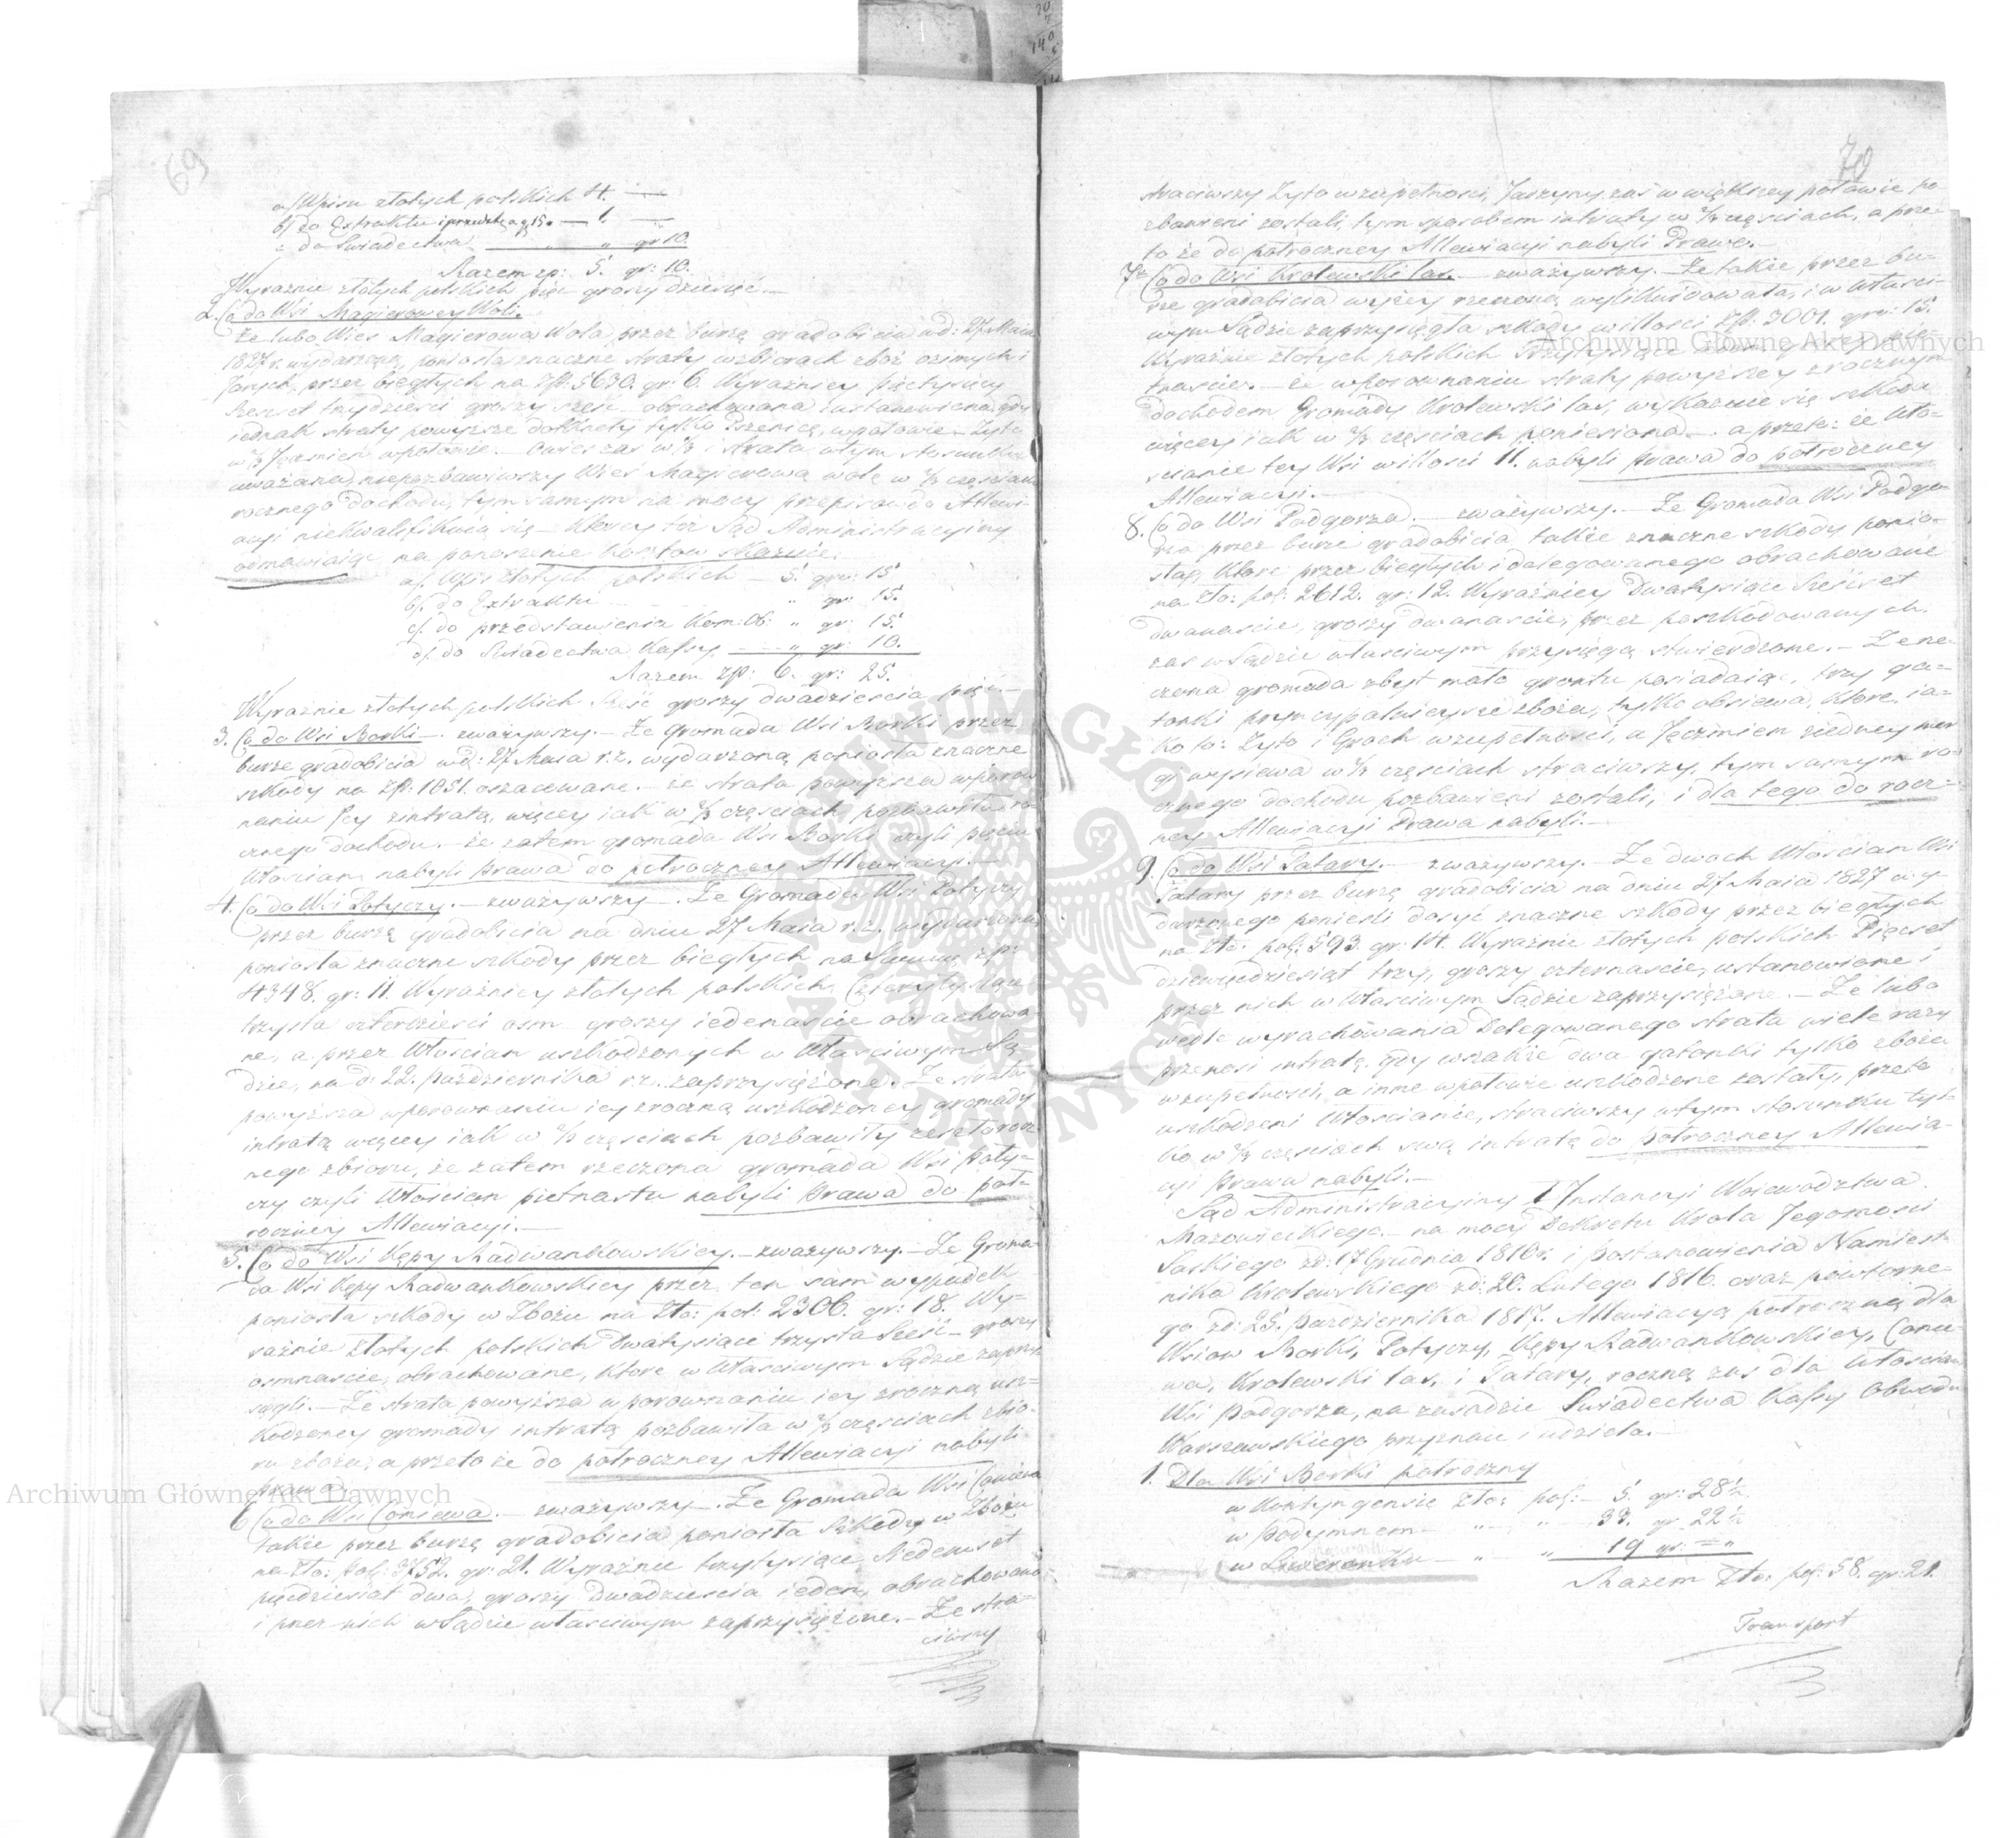 69
a/ Wpisu złotych polskich 4. —
b/ do Extraktu i przedsta. gr 15. — 1. —
c do Świadectwa „ „ gr 10.
Razem zp: 5. gr: 10.
Wyraźnie złotych polskich pięć groszy dziesięć.—
2. Co do Wsi Magierowey Woli.
Że lubo Wieś Magierowa Wola przez burzę gradobicia na d: 27 Maia
1827 r. wydarzoną, poniosła znaczne straty w zbiorach zbóż ozimych i
Jarych, przez biegłych na Zł: 5630. gr: 6. Wyraźniey Pięćtysięcy
Sześset trzydzieści groszy sześć obrachowana i ustanowiona gdy
iednak straty powyższe dotknęły tylko Pszenicę w połowie — Żyto
w ⅔ Jęczmień w połowie. — Owies zaś w ⅓ i strata w tym stosunku
uważana, niepozbawiwszy Wieś Magierową wolę w ⅔ częściach
rocznego dochodu, tym samym na mocy przepisów do Allewi-
acyi niekwalifikuią się — którey też Sąd Administracyiny
odmawiaiąc, na ponoszenie Kosztów skazuie.
a/. Wpis złotych polskich — 5. gr: 15
b/. do Extraktu „ gr: 15.
c/. do przedstawienia Kom: Ob: „ gr: 15.
d/. do Świadectwa Kassy „ gr: 10.
Razem zp: 6. gr: 25.
Wyraźnie złotych polskich Sześć groszy dwadzieścia pięć.—
3. Co do Wsi Borki — zważywszy.— Że Gromada Wsi Borki przez
burzę gradobicia na d: 27 Maia r. z. wydarzoną poniosła znaczne
szkody na Zp: 1051. oszacowane.— że strata powyższa w porów-
naniu Jey z intratą, więcey iak w ⅔ częściach pozbawiła ro-
cznego dochodu.— że zatem gromada Wsi Borki czyli pięciu
Włościan nabyli Prawa do półroczney Allewiacyi.—
4. Co do Wsi Potyczy.— zważywszy.— Że Gromada Wsi Potyczy
przez burzę gradobicia na dniu 27 Maia r. z. wydarzoną
poniosła znaczne szkody przez biegłych na Summę zp:
4348. gr: 11. Wyraźniey złotych polskich Czterytysiące
trzysta czterdzieści osm groszy iedenaście obrachowa-
ne, a przez Włościan uszkodzonych w Właściwym Są-
dzie, na d: 22. Października r. z. zaprzysiężone.— Że strata
powyższa w porównaniu iey z roczną uszkodzoney gromady
intratą więcey iak w ⅔ częściach pozbawiły
nego zbioru, że zatem rzeczona gromada Wsi Poty-
czy czyli Włościan piętnastu nabyli Prawa do pół-
roczney Allewiacyi.—
5. Co do Wsi Kępy Radwankowskiey.— zważywszy.— Że Groma-
da Wsi Kępy Radwankowskiey przez ten sam wypadek
poniosła szkody w Zbożu na Zło: pol: 2306. gr: 18. Wy-
raźnie Złotych polskich Dwatysiące trzysta Sześć — groszy
osmnaście, obrachowane, które w Właściwym Sądzie zaprzy-
sięgli.— Że strata powyższa w porównaniu iey z roczną usz-
kodzoney gromady intratą pozbawiła w ⅔ częściach zbio-
ru zboża, a przeto że do półroczney Allewiacyi nabyli
prawa.
6 Co do Wsi Coniewa.— zważywszy.— Że Gromada Wsi Coniewa
także przez burzę gradobicia poniosła Szkody w Zbożu
na Zło: pol: 3752. gr: 21. Wyraźnie trzytysiące Siedemset
pięćdziesiąt dwa, groszy Dwadzieścia ieden, obrachowane
i przez nich w Sądzie właściwym zaprzysiężone.— Że stra-
ciwszy
70
straciwszy Żyto w zupełności, Jarzyny zaś w większey połowie po-
zbawieni zostali, tym sposobem intraty w ⅔ częściach, a prze-
to że do półroczney Allewiacyi nabyli Prawo.—
7. Co do Wsi Królewski las.— zważywszy.— Że także przez bu-
rzę gradobicia wyżey rzeczoną wylikwidowała, i w właści-
wym Sądzie zaprzysięgła szkody w ilości Zp: 3001. gr: 15.
Wyraźnie złotych polskich trzytysiące ieden groszy pię-
tnaście.— że w porównaniu straty powyższey z rocznym
dochodem Gromady Królewski las, wykazuie się szkoda
więcey iak w ⅔ częściach poniesiona.— a przeto: że Wło-
ścianie tey Wsi w ilości 11. nabyli Prawa do półroczney
Allewiacyi.—
8. Co do Wsi Podgorza.— zważywszy.— Że Gromada Wsi Podgo-
rza przez burzę gradobicia także znaczne szkody ponio-
sła, które przez biegłych i delegowanego obrachowane
na Zło: pol: 2612. gr: 12. Wyraźniey Dwatysiące Sześćset
dwanaście, groszy dwanaście, przez poszkodowanych
zaś w Sądzie właściwym przysięgą stwierdzone.— Że rze-
czona gromada zbyt mało gruntu posiadaiąc, trzy ga-
tonki pryncypalnieysze zboża, tylko obsiewa, które ia-
ko to: Żyto i Groch w zupełności, a Jęczmień
gi wysiewa w ⅔ częściach straciwszy, tym samym ro-
cznego dochodu pozbawieni zostali, i dla tego do rocz-
ney Allewiacyi Prawa nabyli.—
9. Co do Wsi Tatary.— zważywszy.— Że dwóch Włościan Wsi
Tatary przez burzę gradobicia na dniu 27 Maia 1827 wy-
darzonego ponieśli dosyć znaczne szkody przez biegłych
na Zło: pol: 593. gr: 14. Wyraźnie złotych polskich Pięćset
dziewięćdziesiąt trzy, groszy czternaście, ustanowione i
przez nich w Właściwym Sądzie zaprzysiężone.— Że lubo
wedle wyrachowania Delegowanego strata wiele razy
przenosi intratę, gdy wszakże dwa gatonki tylko zboża
w zupełności, a inne w połowie uszkodzone zostały, przeto
uszkodzeni Włościanie, straciwszy w tym stosunku tyl-
ko w ⅔ częściach swą intratę do półroczney Allewia-
cyi Prawa nabyli.—
Sąd Administracyiny I Instancyi Woiewództwa
Mazowieckiego.— na mocy Dekretu Króla Jegomości
Saskiego z d: 17 Grudnia 1810 r. i Postanowienia Namiest-
nika Królewskiego z d: 20. Lutego 1816. oraz powtórne-
go z d: 25. Października 1817. Allewiacyą półroczną dla
Wsiów Borki, Potyczy, Kępy Radwankowskiey, Conie-
wa, Królewski las, i Tatary, roczną zaś dla Włościan
Wsi Podgorza, na zasadzie Świadectwa Kassy Obwodu
Warszawskiego przyznaie i udziela.—
1. Dla Wsi Borki półroczny
w Kontyngensie Zło: pol: — 5. gr: 28½
w Podymnem — „ — „ — 33. gr 22½
w Liwerunku — „ — „ 19 gr: = „
Razem Zło: pol: 58. gr: 21.
Transport
Archiwum Główne Akt Dawnych
Archiwum Główne Akt Dawnych
ARCHIWUM GŁÓWNE AKT DAWNYCH